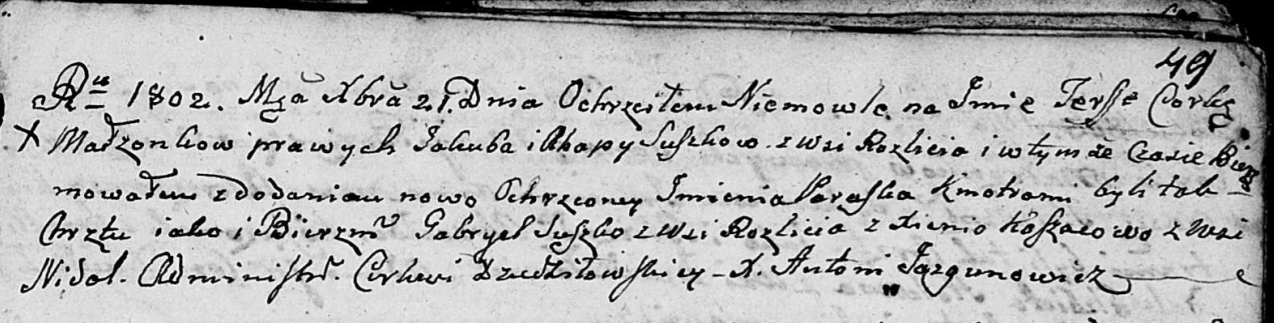 49
Ru 1802. Mca Xbra 21. Dnia Ochrzciłem Niemowlę na Imie Teresse Corkę
Małżonkow prawych Jakuba i Ahapy Suszkow z wsi Rozlicia i w tymże czasie Bierz
mowałem z dodaniem nowo Ochrzconey Imienia Paraska Kmotrami byli tak
Chrztu iako i Bierzm Gabryel Suszko z wsi Rozlicia z Xienio z wsi
Nidal. Administr. Cerkwi Dzedziłowskiey X. Antoni Jazgunowicz